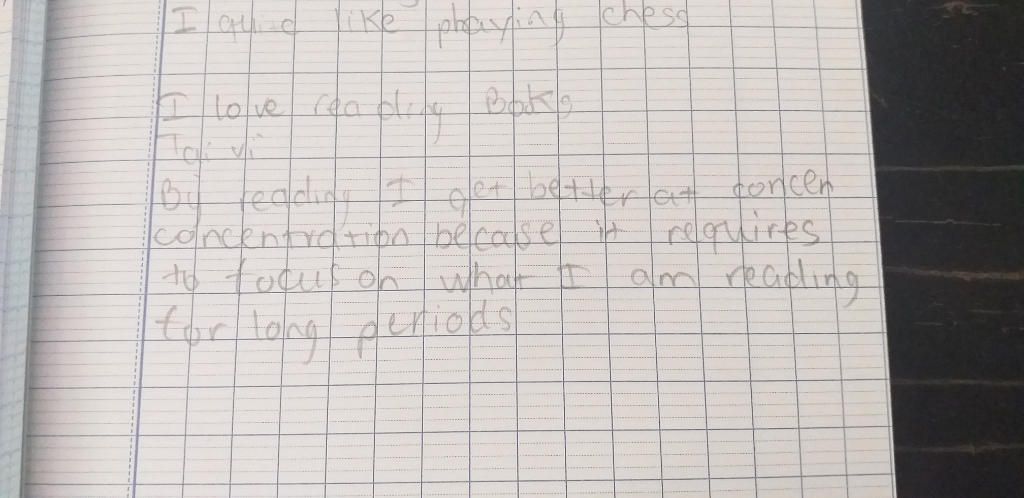 I like playing chess
I love reading Books
By reading I get better at concen
concentration becase it requires
to focus on what I am reading
for long periods